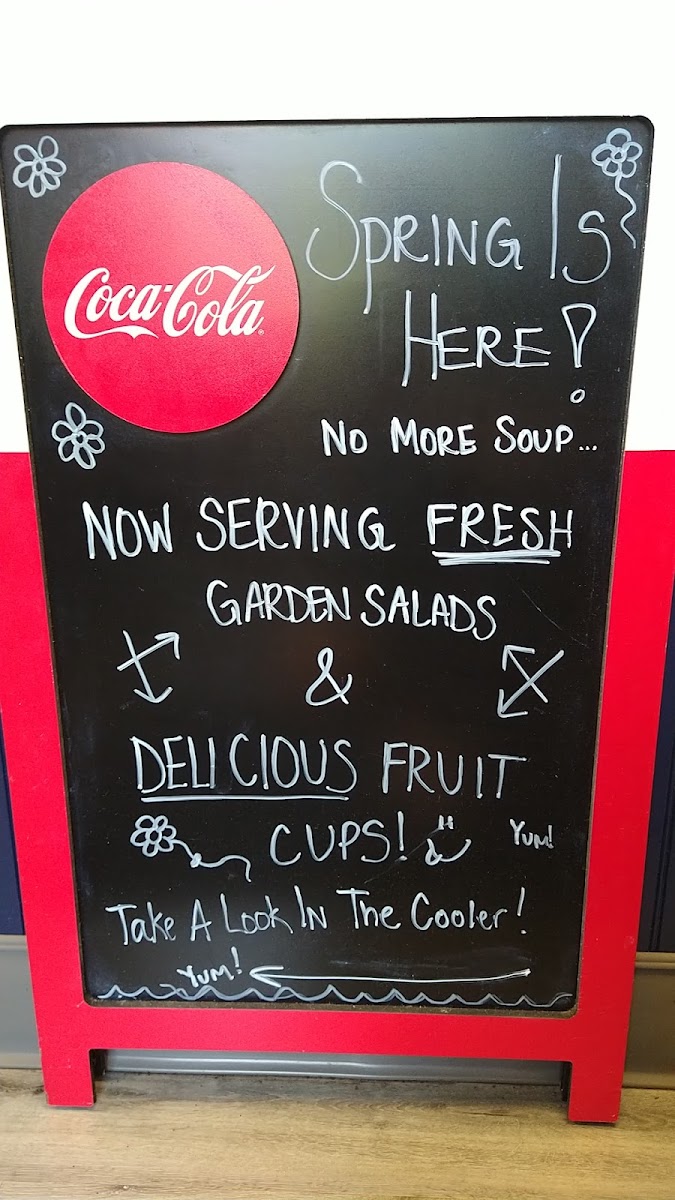 Coca-Cola
Spring Is
Here!
No More Soup...
NOW SERVING FRESH
GARDEN SALADS
&
DELICIOUS FRUIT
CUPS! Yum!
Take A Look In The Cooler!
Yum!